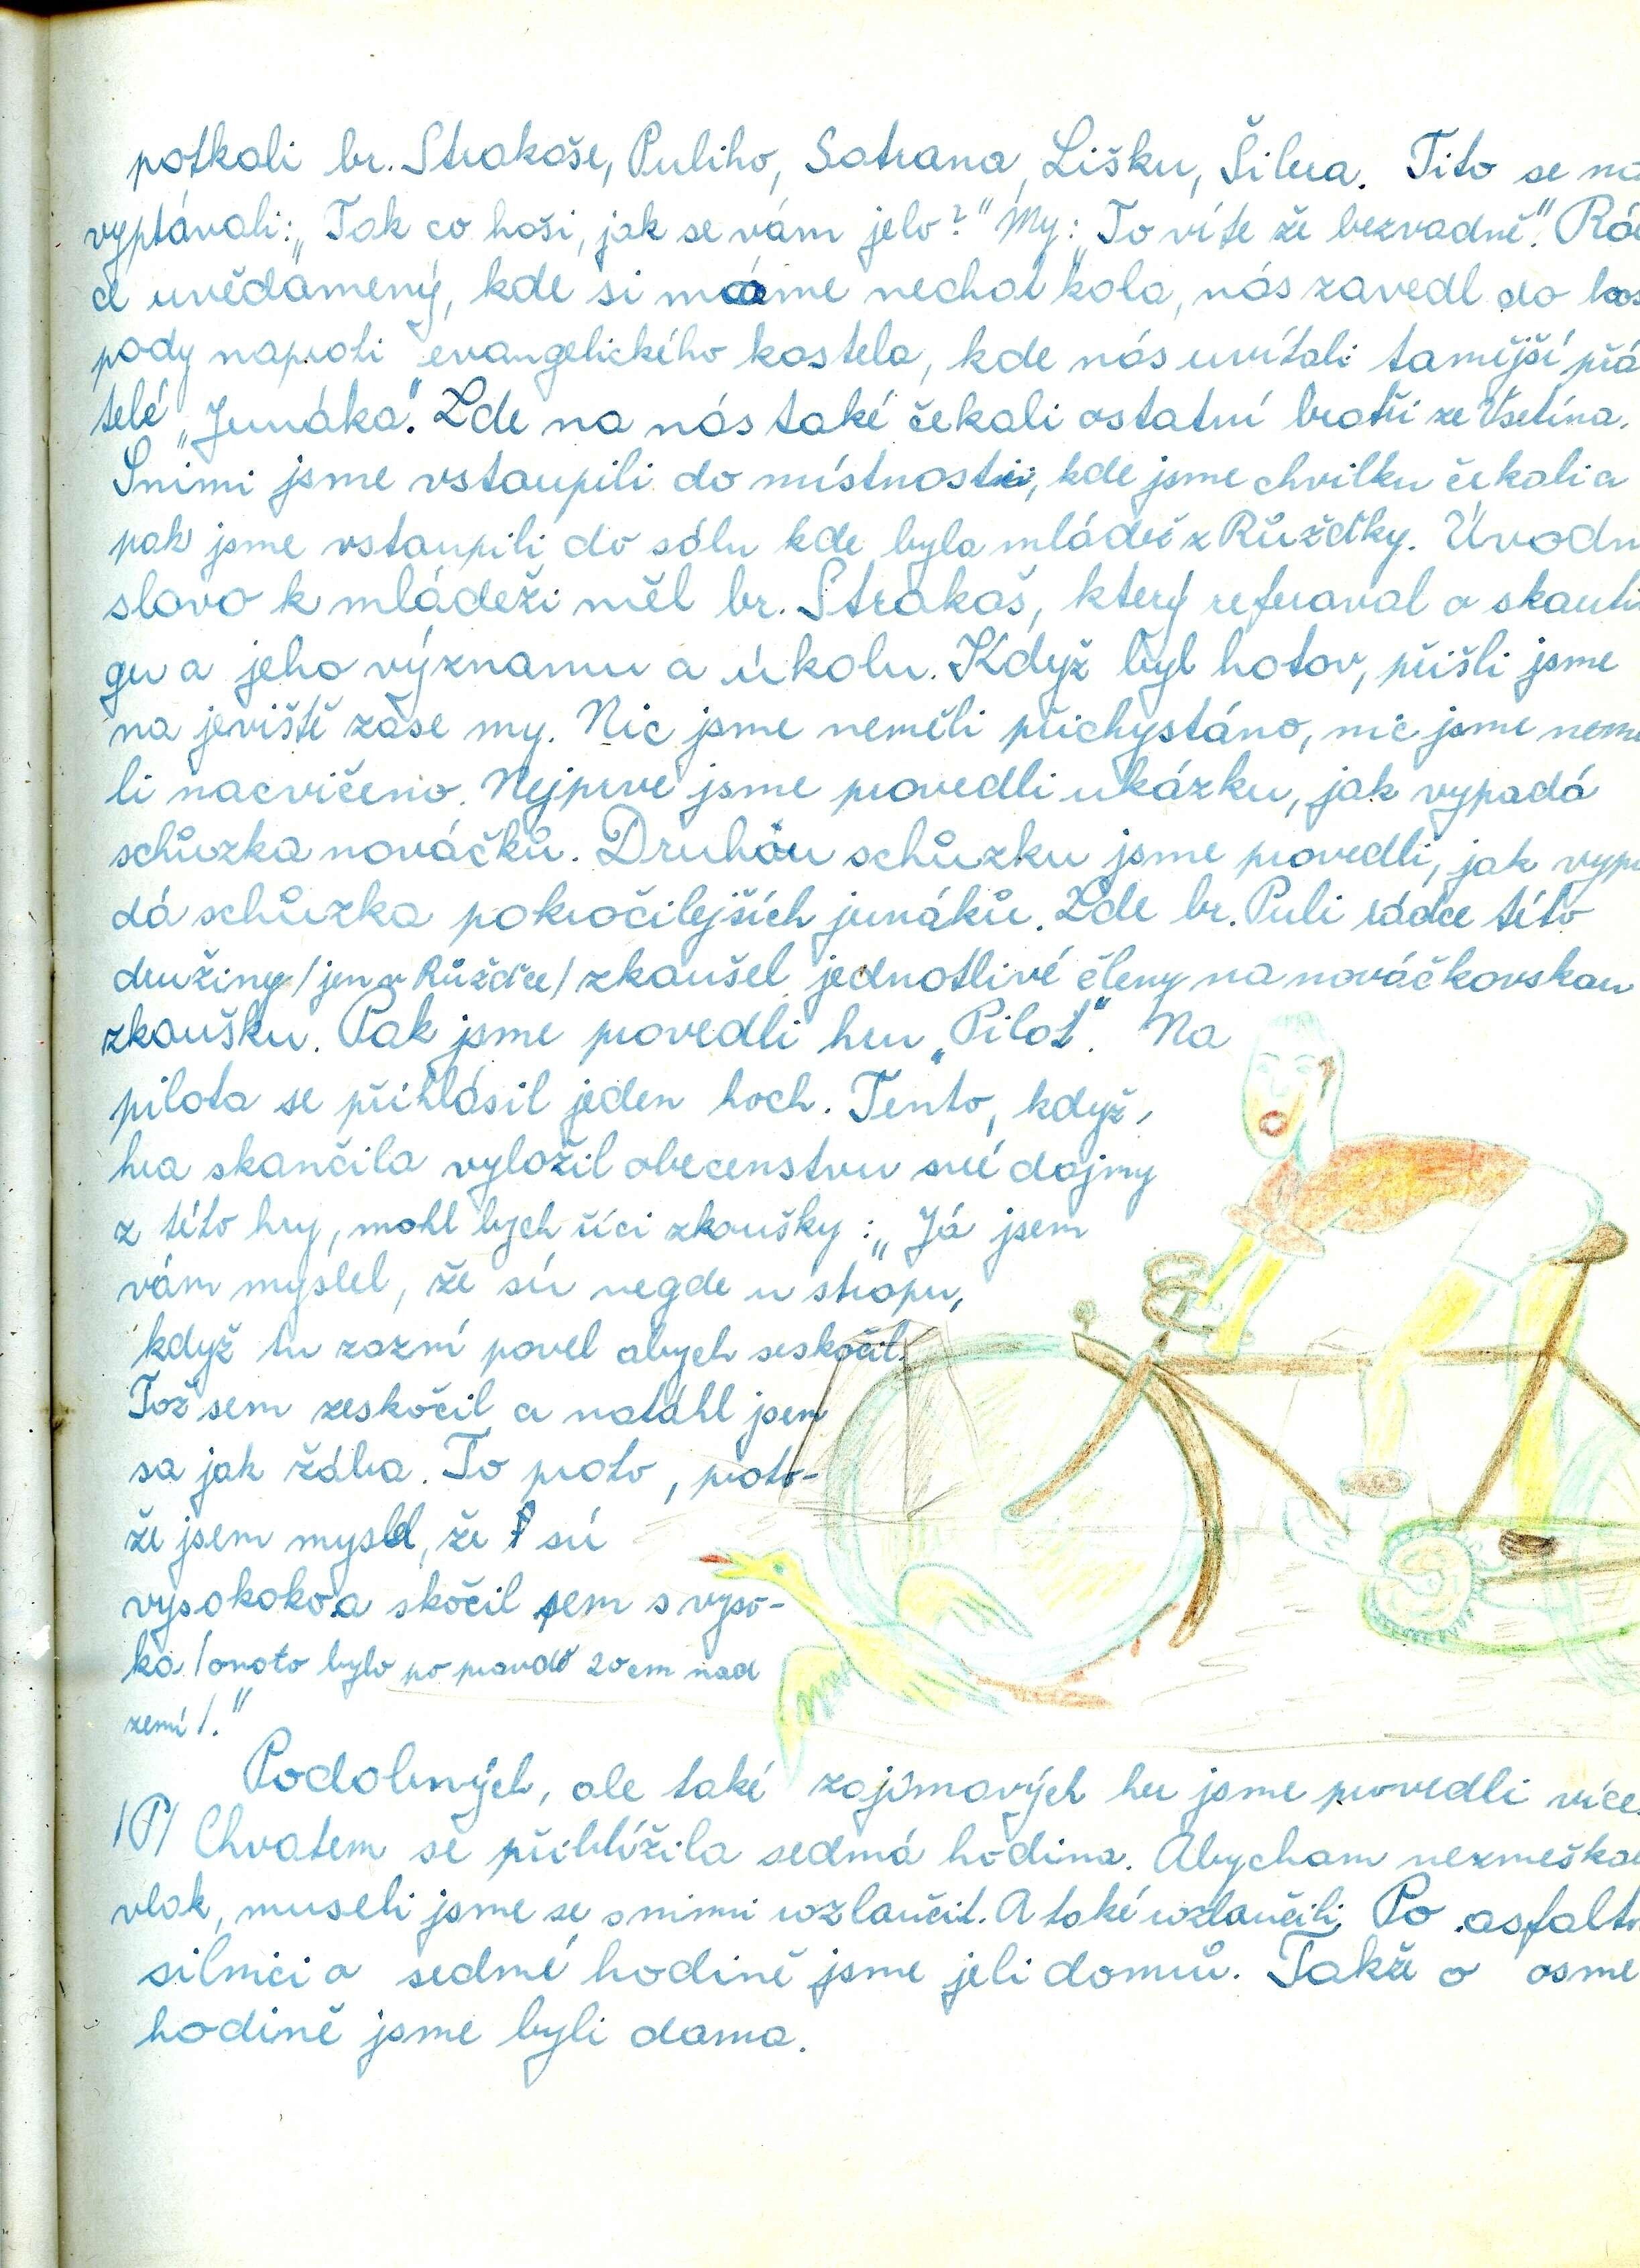 potkali br. Strakoše, Puliho, Satrana, Lišku, Šilera. Tito se ná
vyptávali: „Tak co hoši, jak se vám jelo?" My: „To víte že bezvadně." Rád
ce uvědomený, kde si máme nechat kola, nás zavedl do hos
pody naproti evangelického kostela, kde nás uvítali tamější přá
telé „Junáka". Zde na nás také čekali ostatní bratři ze Vsetína.
S nimi jsme vstoupili do místnosti, kde jsme chvilku čekali a
pak jsme vstoupili do sálu kde byla mládež z Růžďky. Úvodn
slovo k mládeži měl br. Strakoš, který referoval o skauti
gu a jeho významu a úkolu. Když byl hotov, přišli jsme
na jeviště zase my. Nic jsme neměli přichystáno, nic jsme nemě
li nacvičeno. Nejprve jsme provedli ukázku, jak vypadá
schůzka nováčků. Druhou schůzku jsme provedli, jak vypa
dá schůzka pokročilejších junáků. Zde br. Puli rádce této
družiny /jen v Růžďce/ zkoušel jednotlivé členy na nováčkovskou
zkoušku. Pak jsme provedli hru „Pilot". Na
pilota se přihlásil jeden hoch. Tento, když
hra skončila vyložil obecenstvu své dojmy
z této hry, mohl bych říci zkoušky: „Já jsem
vám myslel, že sú negde u stropu,
když tu zazní povel abych seskočil.
Tož sem zeskočil a natáhl jsem
sa jak žába. To proto, proto-
že jsem myslel, že sú
vysokoko a skočil sem s vyso-
ka /onoto bylo po pravdě 20 cm nad
zemí/."
Podobných, ale také zajímavých her jsme provedli více.
/P/ Chvatem se přiblížila sedmá hodina. Abychom nezmeškali
vlak, museli jsme se s nimi rozloučit. A také rozloučili. Po asfalto
silnici o sedmé hodině jsme jeli domů. Takže o osmé
hodině jsme byli doma.